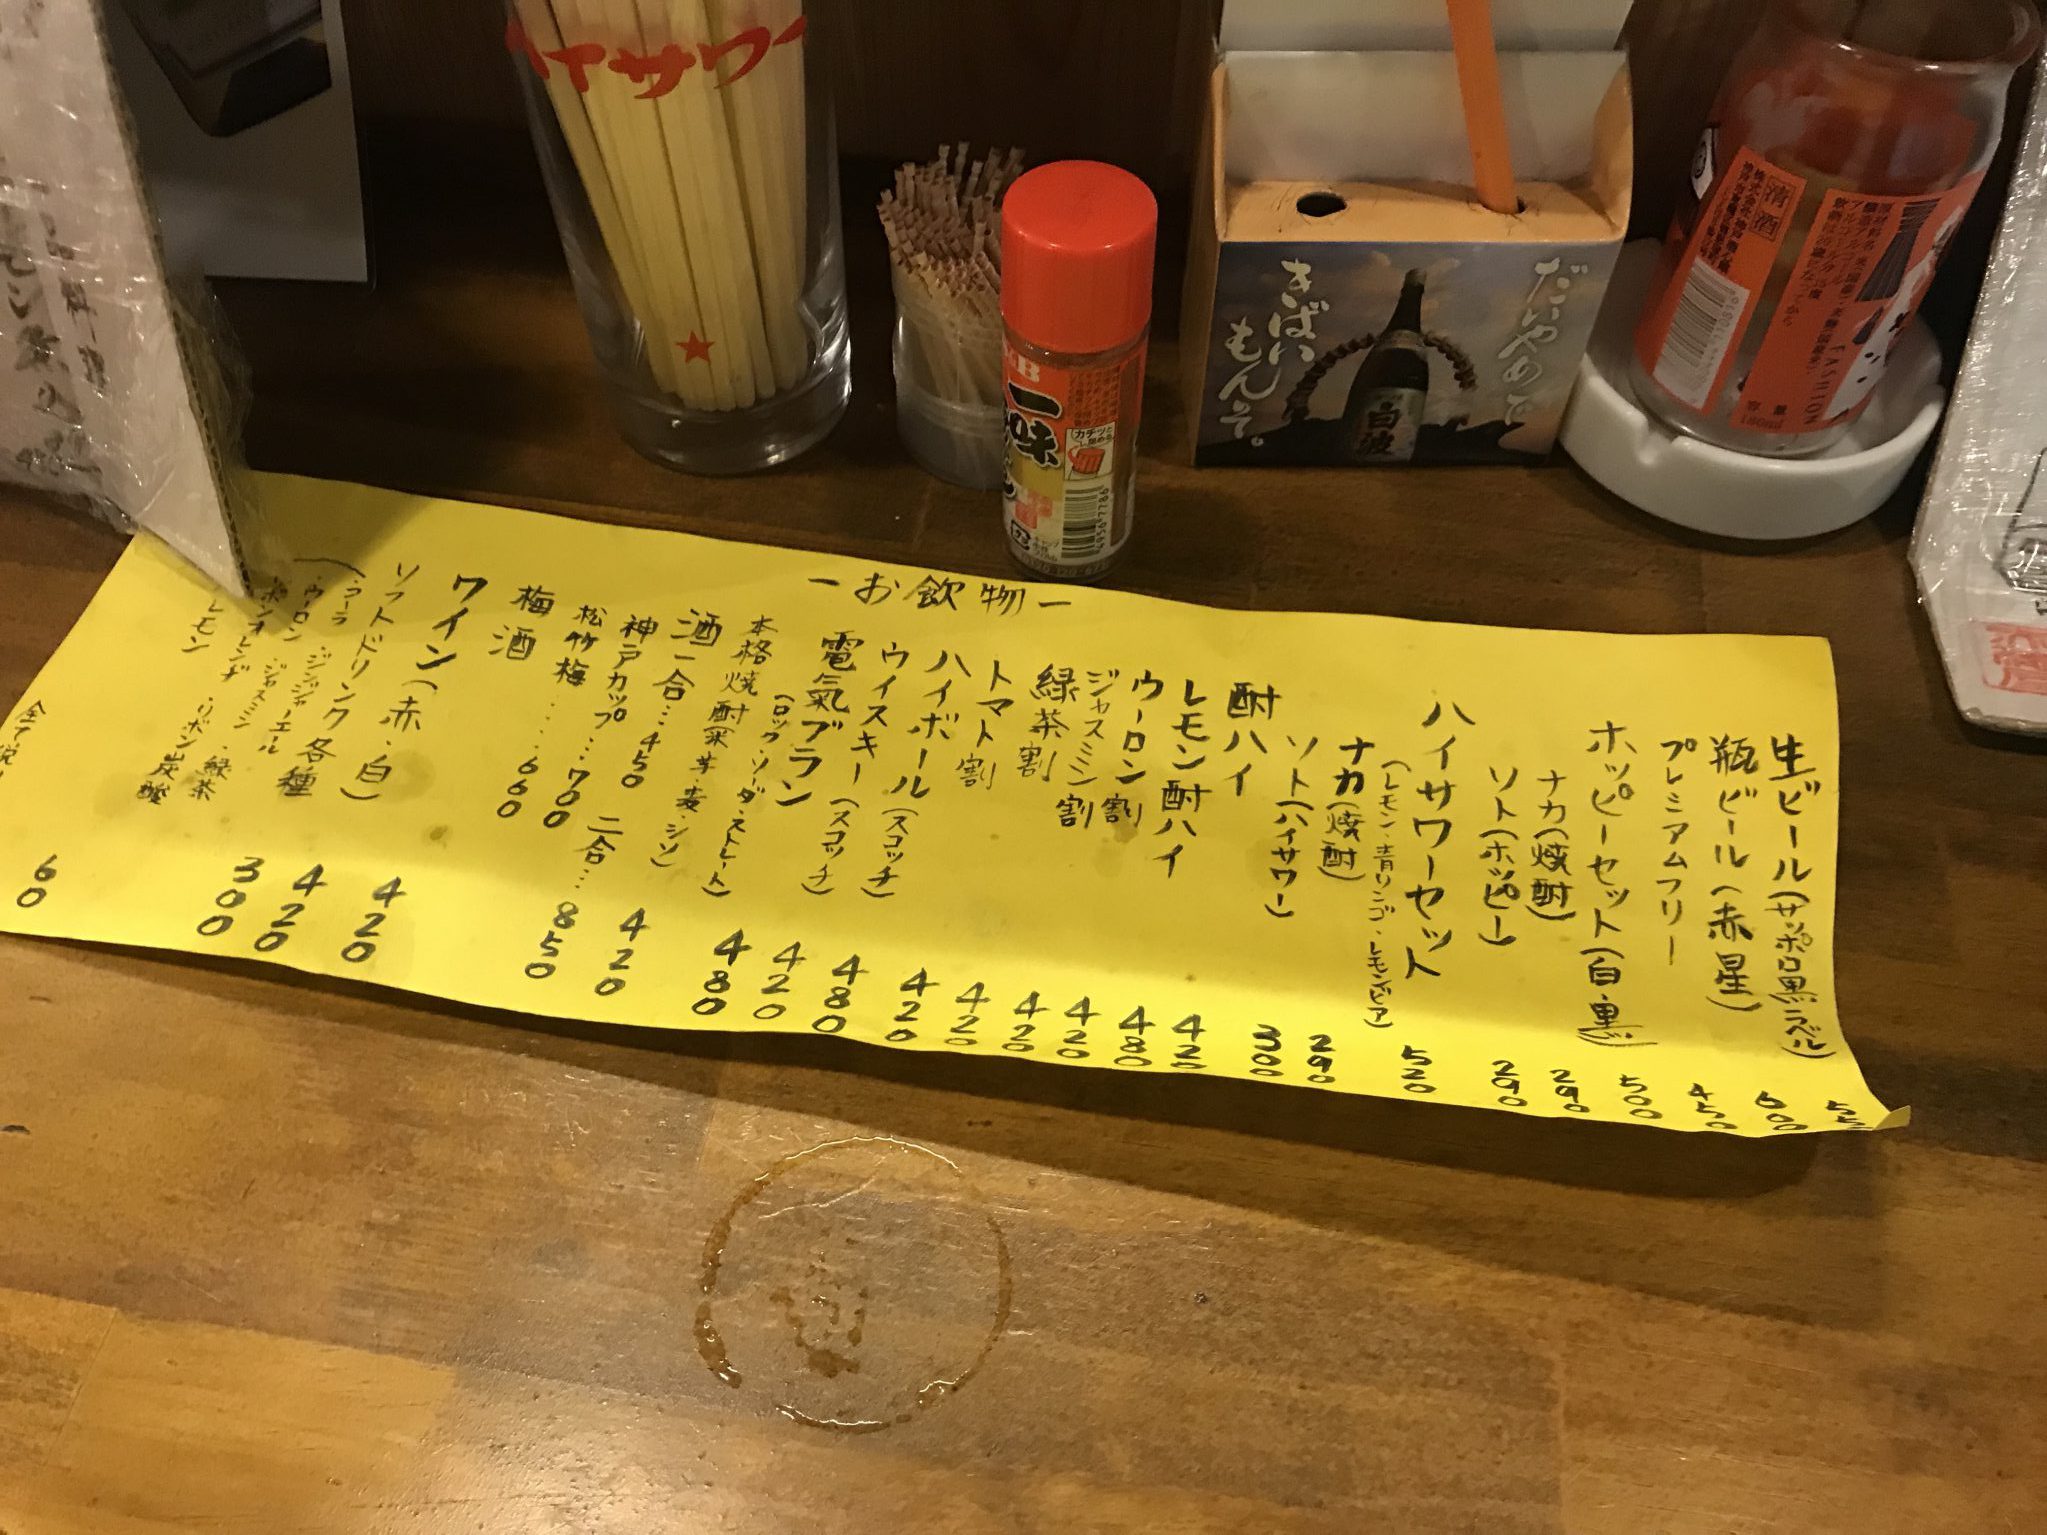 ーお飲物ー
生ビール(サッポロ黒ラベル)
瓶ビール(赤星) 600
プレミアムフリー 450
ホッピーセット(白・黒) 500
ナカ(焼酎) 290
ソト(ホッピー) 290
ハイサワーセット 520
(レモン・青リンゴ・レモンビア)
ナカ(焼酎) 290
ソト(ハイサワー) 300
酎ハイ
レモン酎ハイ 420
ウーロン割 480
ジャスミン割 420
緑茶割 420
トマト割 420
ハイボール(スコッチ) 420
ウイスキー(スコッチ) 480
電氣ブラン 420
(ロック・ソーダ・ストレート)
本格焼酎 粟・芋・麦・シソ 480
酒一合…450 二合…850
神戸カップ…700
松竹梅……660
梅酒 420
ワイン(赤・白) 420
ソフトドリンク各種 420
(・コーラ ・ジンジャーエール
・ウーロン ・ジャスミン
・ポンオレンヂ ・緑茶
レモン ・リボン炭酸
300
60
サワー
一味
きばいもんそ。
だいやめで
白波
清酒
4956810862
容量 180ml